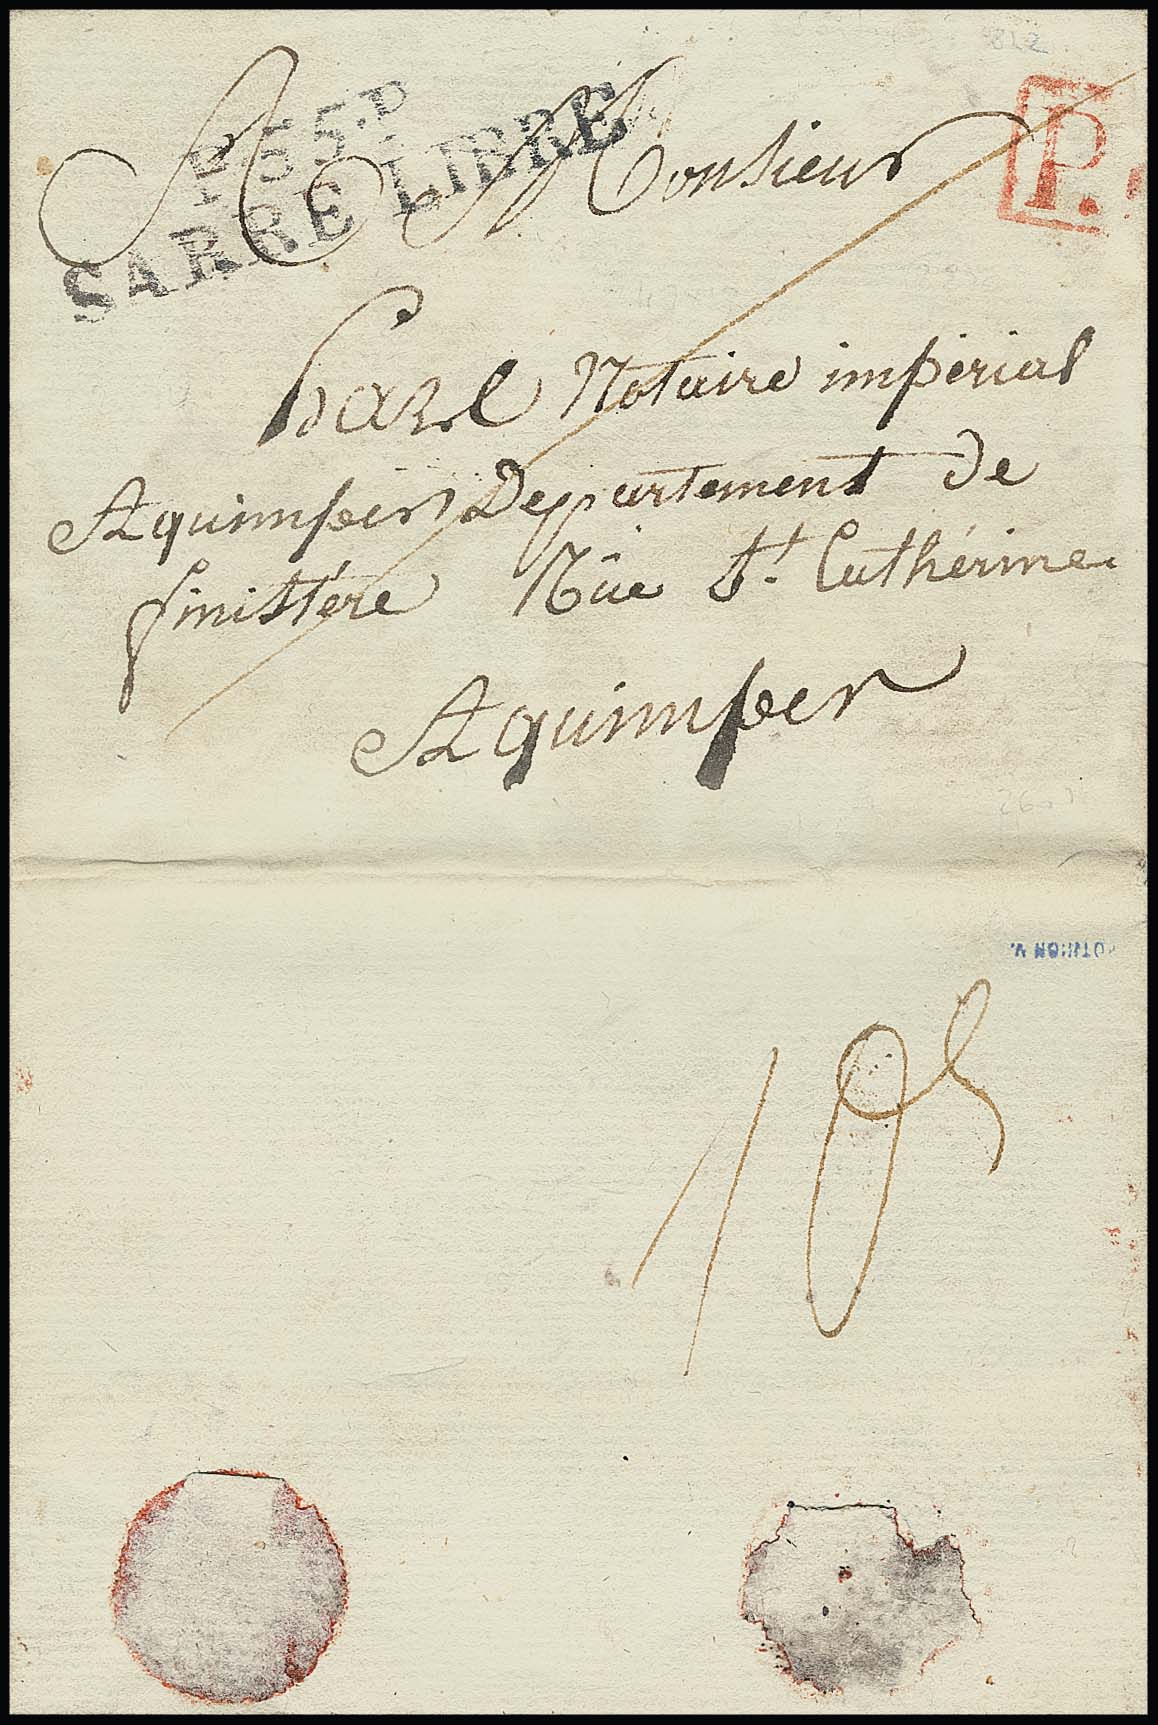 P.55.P
SARRE LIBRE
P.
A Monsieur
Notaire impérial
A quimper Departement de
finistére Rüe St. Cathérine
A quimper
10